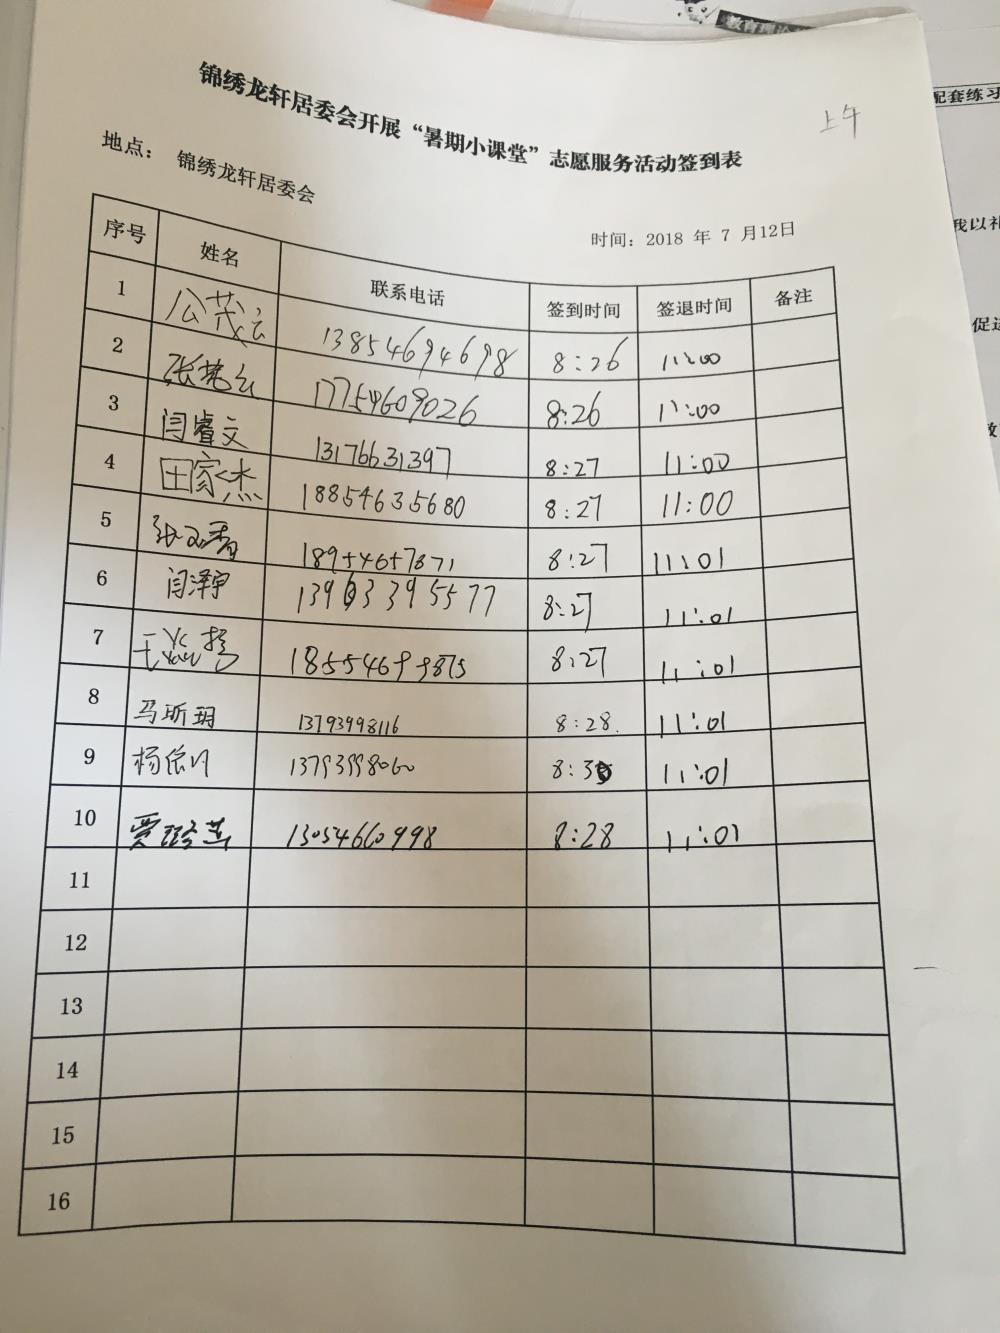 教育理论
配套练习
上午
锦绣龙轩居委会开展“暑期小课堂”志愿服务活动签到表
地点： 锦绣龙轩居委会
时间：2018 年 7 月12日
序号 姓名 联系电话 签到时间 签退时间 备注
1 公茂云 13854694698 8:26 11:00
2 17754609026 8:26 11:00
3 闫睿文 13176631397 8:27 11:00
4 田家杰 18854635680 8:27 11:00
5 18954657871 8:27 11:01
6 闫泽宇 13963395577 8:27 11:01
7 18554699875 8:27 11:01
8 马昕玥 13793998116 8:28 11:01
9 杨依 13793998060 8:3 11:01
10 贾 13054660998 8:28 11:01
11
12
13
14
15
16
我以礼
促进